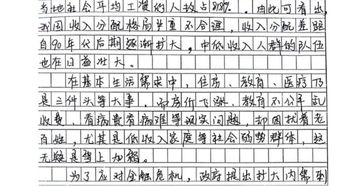 当地社会平均工资的人数占81.8%。由此可看出,
我国收入分配格局严重不合理,收入分配差距
自90年代后期逐渐扩大。中低收入人群的队伍
也在日益壮大。
在基本生活需求中,住房、教育、医疗乃
是三件头等大事。而房价飞涨、教育不公平乱
收费、看病费看病难等现实问题,却困扰着老
百姓,尤其是低收入家庭等社会弱势群体,这
无疑是雪上加霜。
为了应对金融危机,政府提出扩大内需来